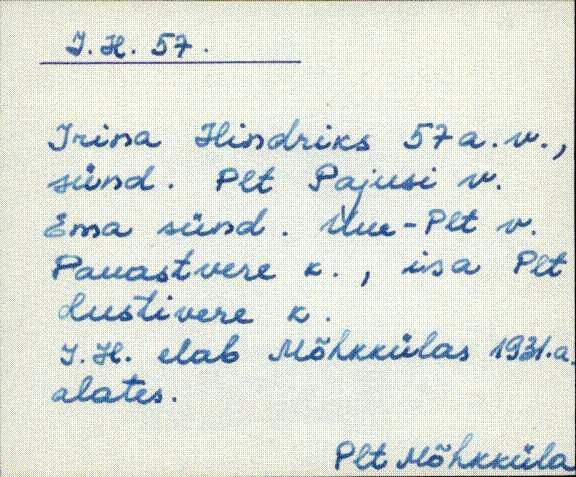 I. H. 57.
Irina Hindriks 57 a. v.,
sünd. Plt Pajusi v.
Ema sünd. Uue-Plt v.
Pauastvere k., isa Plt
Lustivere k.
I. H. elab Mõhkkülas 1931.a.
alates.
Plt Mõhkküla